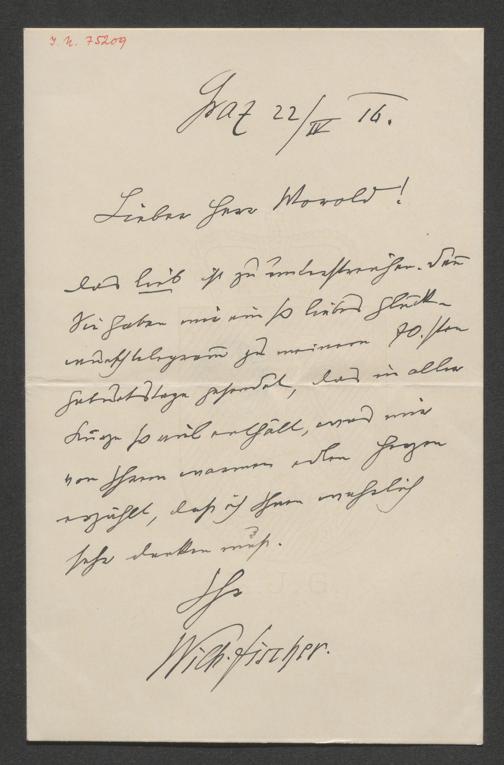 J. N. 75209
Graz 22/IV 16.
Lieber Herr Worold!
Das lieb ist zu unterstreichen. Denn
Sie haben mir ein so liebes Glück-
wunschtelegramm zu meinem 70.sten
Geburtstage gesendet, das in aller
Kürze so viel enthält, was mir
von Ihrem warmen edlen Herzen
erzählt, daß ich Ihnen wahrlich
sehr danken muß.
Ihr
Wilh. Fischer.